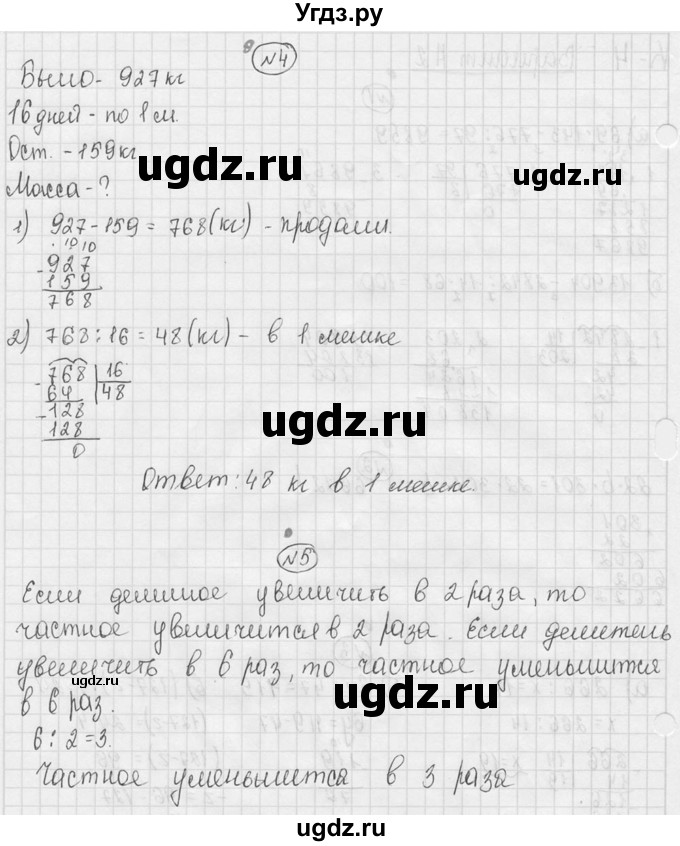 Угдз.ру
№4
Было - 927 кг
16 дней - по 1 м.
Ост. - 159 кг
ugdz.ru
ugdz.ru
Масса - ?
1) 927 - 159 = 768 (кг) - продали.
. 10 10
- 927
159
768
2) 768 : 16 = 48 (кг) - в 1 мешке
- 768 | 16
64 48
- 128
128
0
ugdz.ru
ugdz.ru
Ответ: 48 кг в 1 мешке.
№5
ugdz.ru
Если делимое увеличить в 2 раза, то
частное увеличится в 2 раза. Если делитель
увеличить в 6 раз, то частное уменьшится
в 6 раз.
ugdz.ru
ugdz.ru
6 : 2 = 3.
Частное уменьшится в 3 раза
ugdz.ru
ugdz.ru